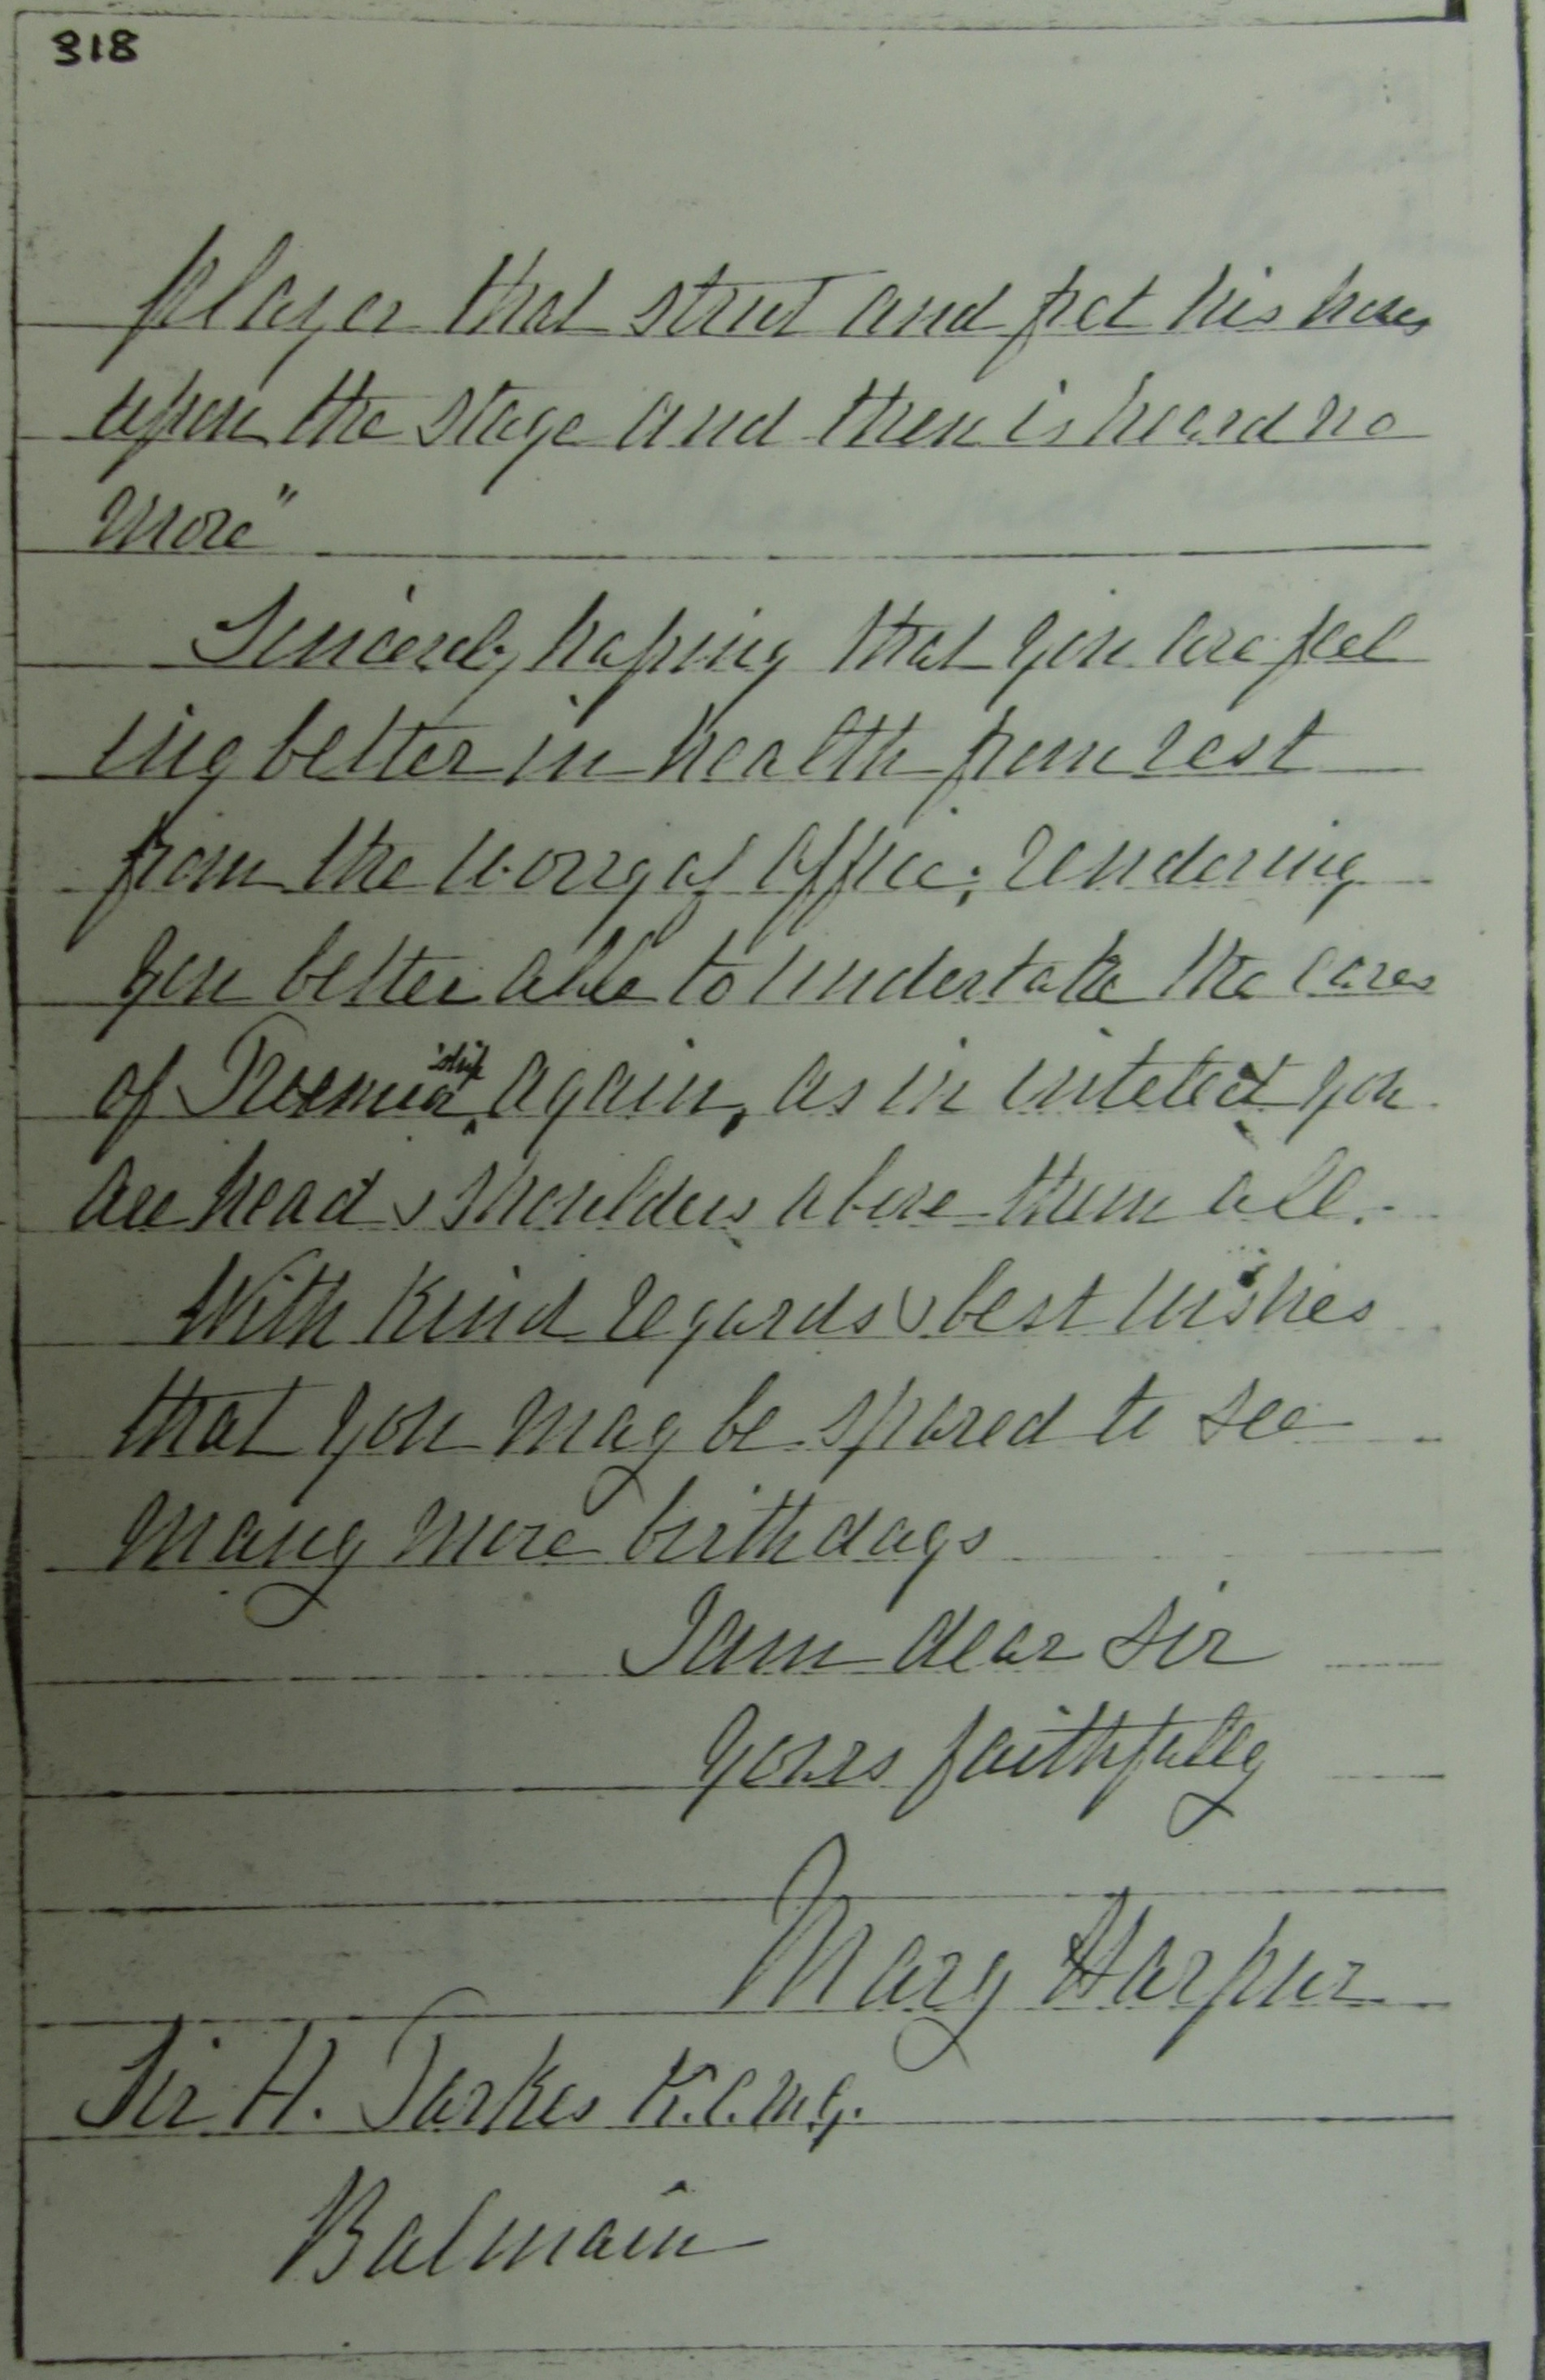 318
player that strut and fret his hour
upon the stage and then is heard no
more"
Sincerely hoping that you are feel
ing better in health from rest
from the worry of office; rendering
you better able to undertake the cares
of Premier'ship again, as in intelect you
are head & shoulders above them all.
With kind regards & best wishes
that you may be spared to see
many more birthdays
I am dear Sir
yours faithfully
Mary Harpur
Sir H. Parkes K.C.M.G.
Balmain